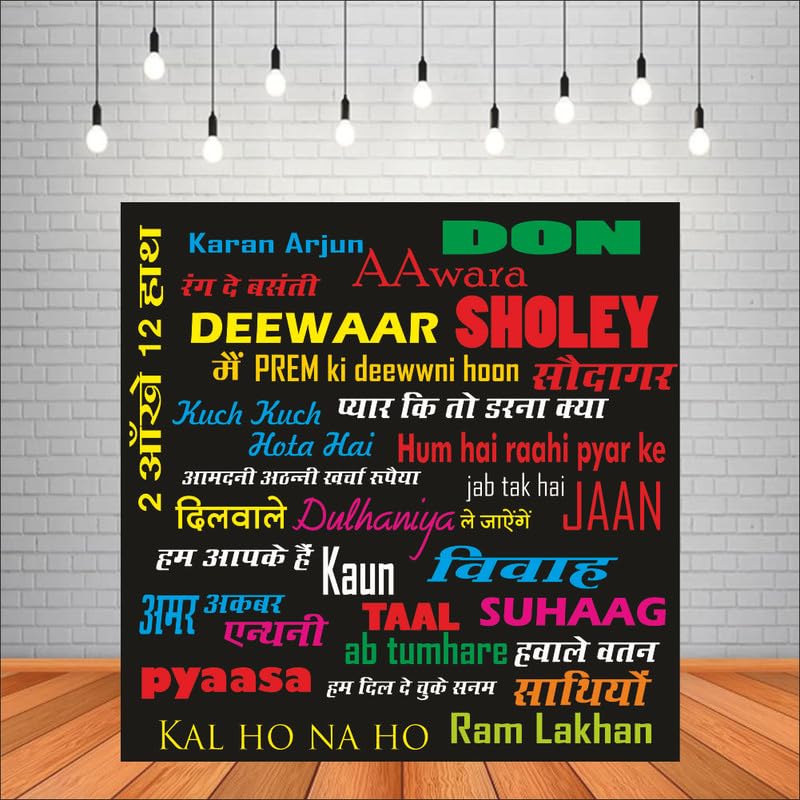 2 आँखे 12 हाथ
Karan Arjun
DON
AAwara
रंग दे बसंती
DEEWAAR
SHOLEY
मैं PREM ki deewwni hoon
सौदागर
Kuch Kuch
Hota Hai
प्यार कि तो डरना क्या
Hum hai raahi pyar ke
आमदनी अठन्नी खर्चा रूपैया
jab tak hai
JAAN
दिलवाले Dulhaniya ले जाऐंगें
हम आपके हैं
Kaun
विवाह
अमर अकबर
एन्थनी
TAAL
SUHAAG
ab tumhare हवाले वतन
साथियों
pyaasa
हम दिल दे चुके सनम
KAL HO NA HO
Ram Lakhan